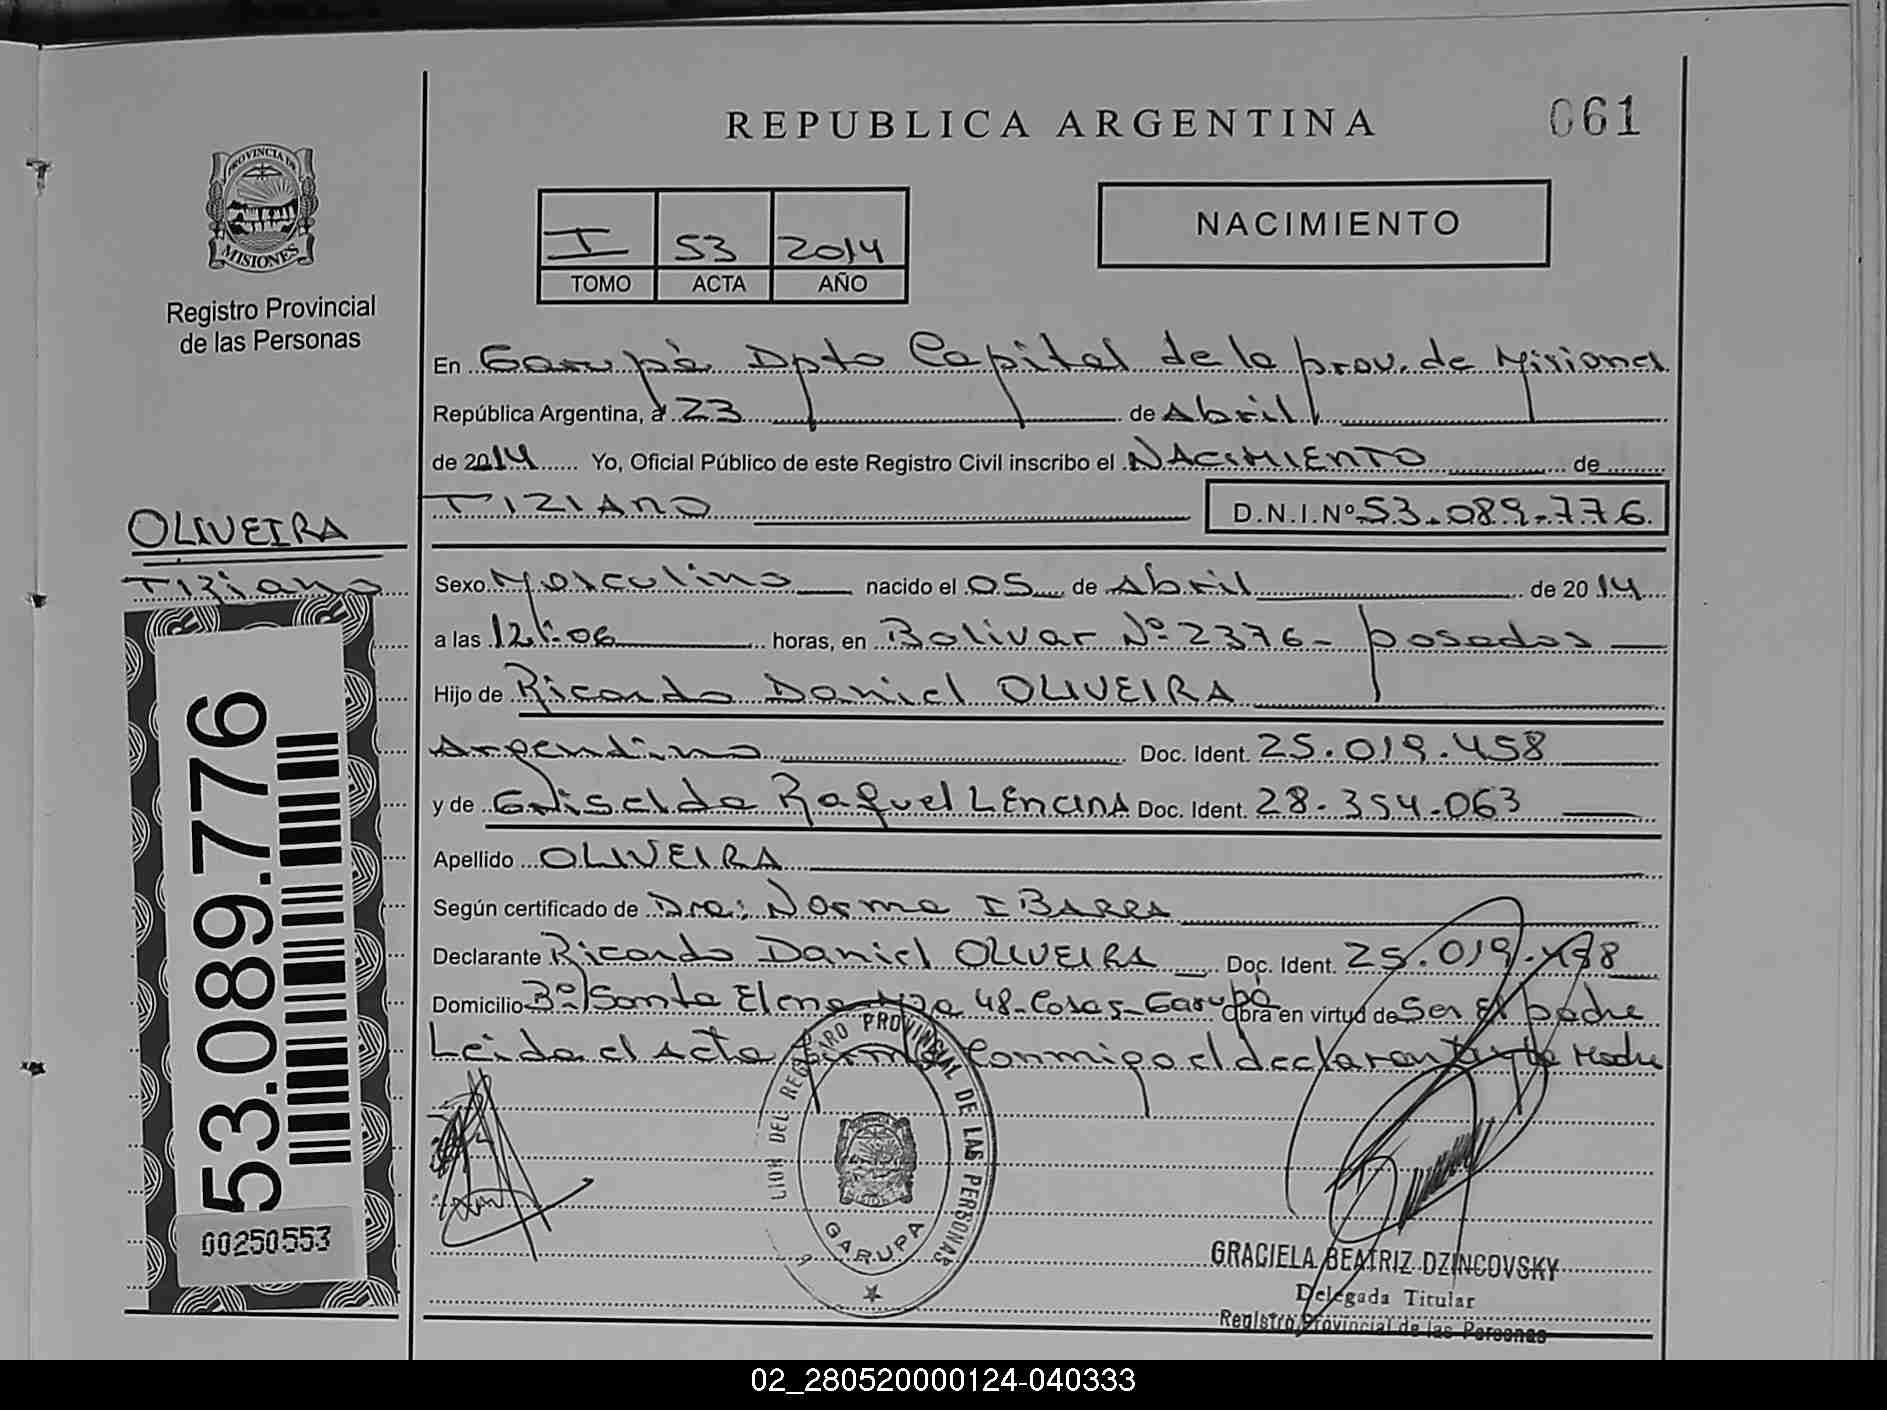 REPUBLICA ARGENTINA
061
PROVINCIA DE
MISIONES
Registro Provincial
de las Personas
I 53 2014
TOMO ACTA AÑO
NACIMIENTO
En Garupà Dpto Capital de la prov. de Misiones
República Argentina, a 23 de Abril
de 2014 Yo, Oficial Público de este Registro Civil inscribo el NACIMIENTO de
TIZIANO D.N.I.Nº 53.089.776
OLIVEIRA
Tiziano
Sexo Masculino nacido el 05 de Abril de 2014
a las 12:06 horas, en Bolivar Nº 2376 - posadas
Hijo de Ricardo Daniel OLIVEIRA
Argentino Doc. Ident. 25.019.458
y de Griselda Raquel LENCINA Doc. Ident. 28.354.063
Apellido OLIVEIRA
Según certificado de Dra: Norma IBARRA
Declarante Ricardo Daniel OLIVEIRA Doc. Ident. 25.019.458
Domicilio Bº Santa Elena Mza 48-Casa 5-Garupá Obra en virtud de Ser El padre
Leida el Acta firma Conmigo el declarante y la Madre
53.089.776
00250553
DEL REGISTRO PROVINCIAL DE LAS PERSONAS
GARUPA
GRACIELA BEATRIZ DZINCOVSKY
Delegada Titular
Registro Provincial de las Personas
02_280520000124-040333